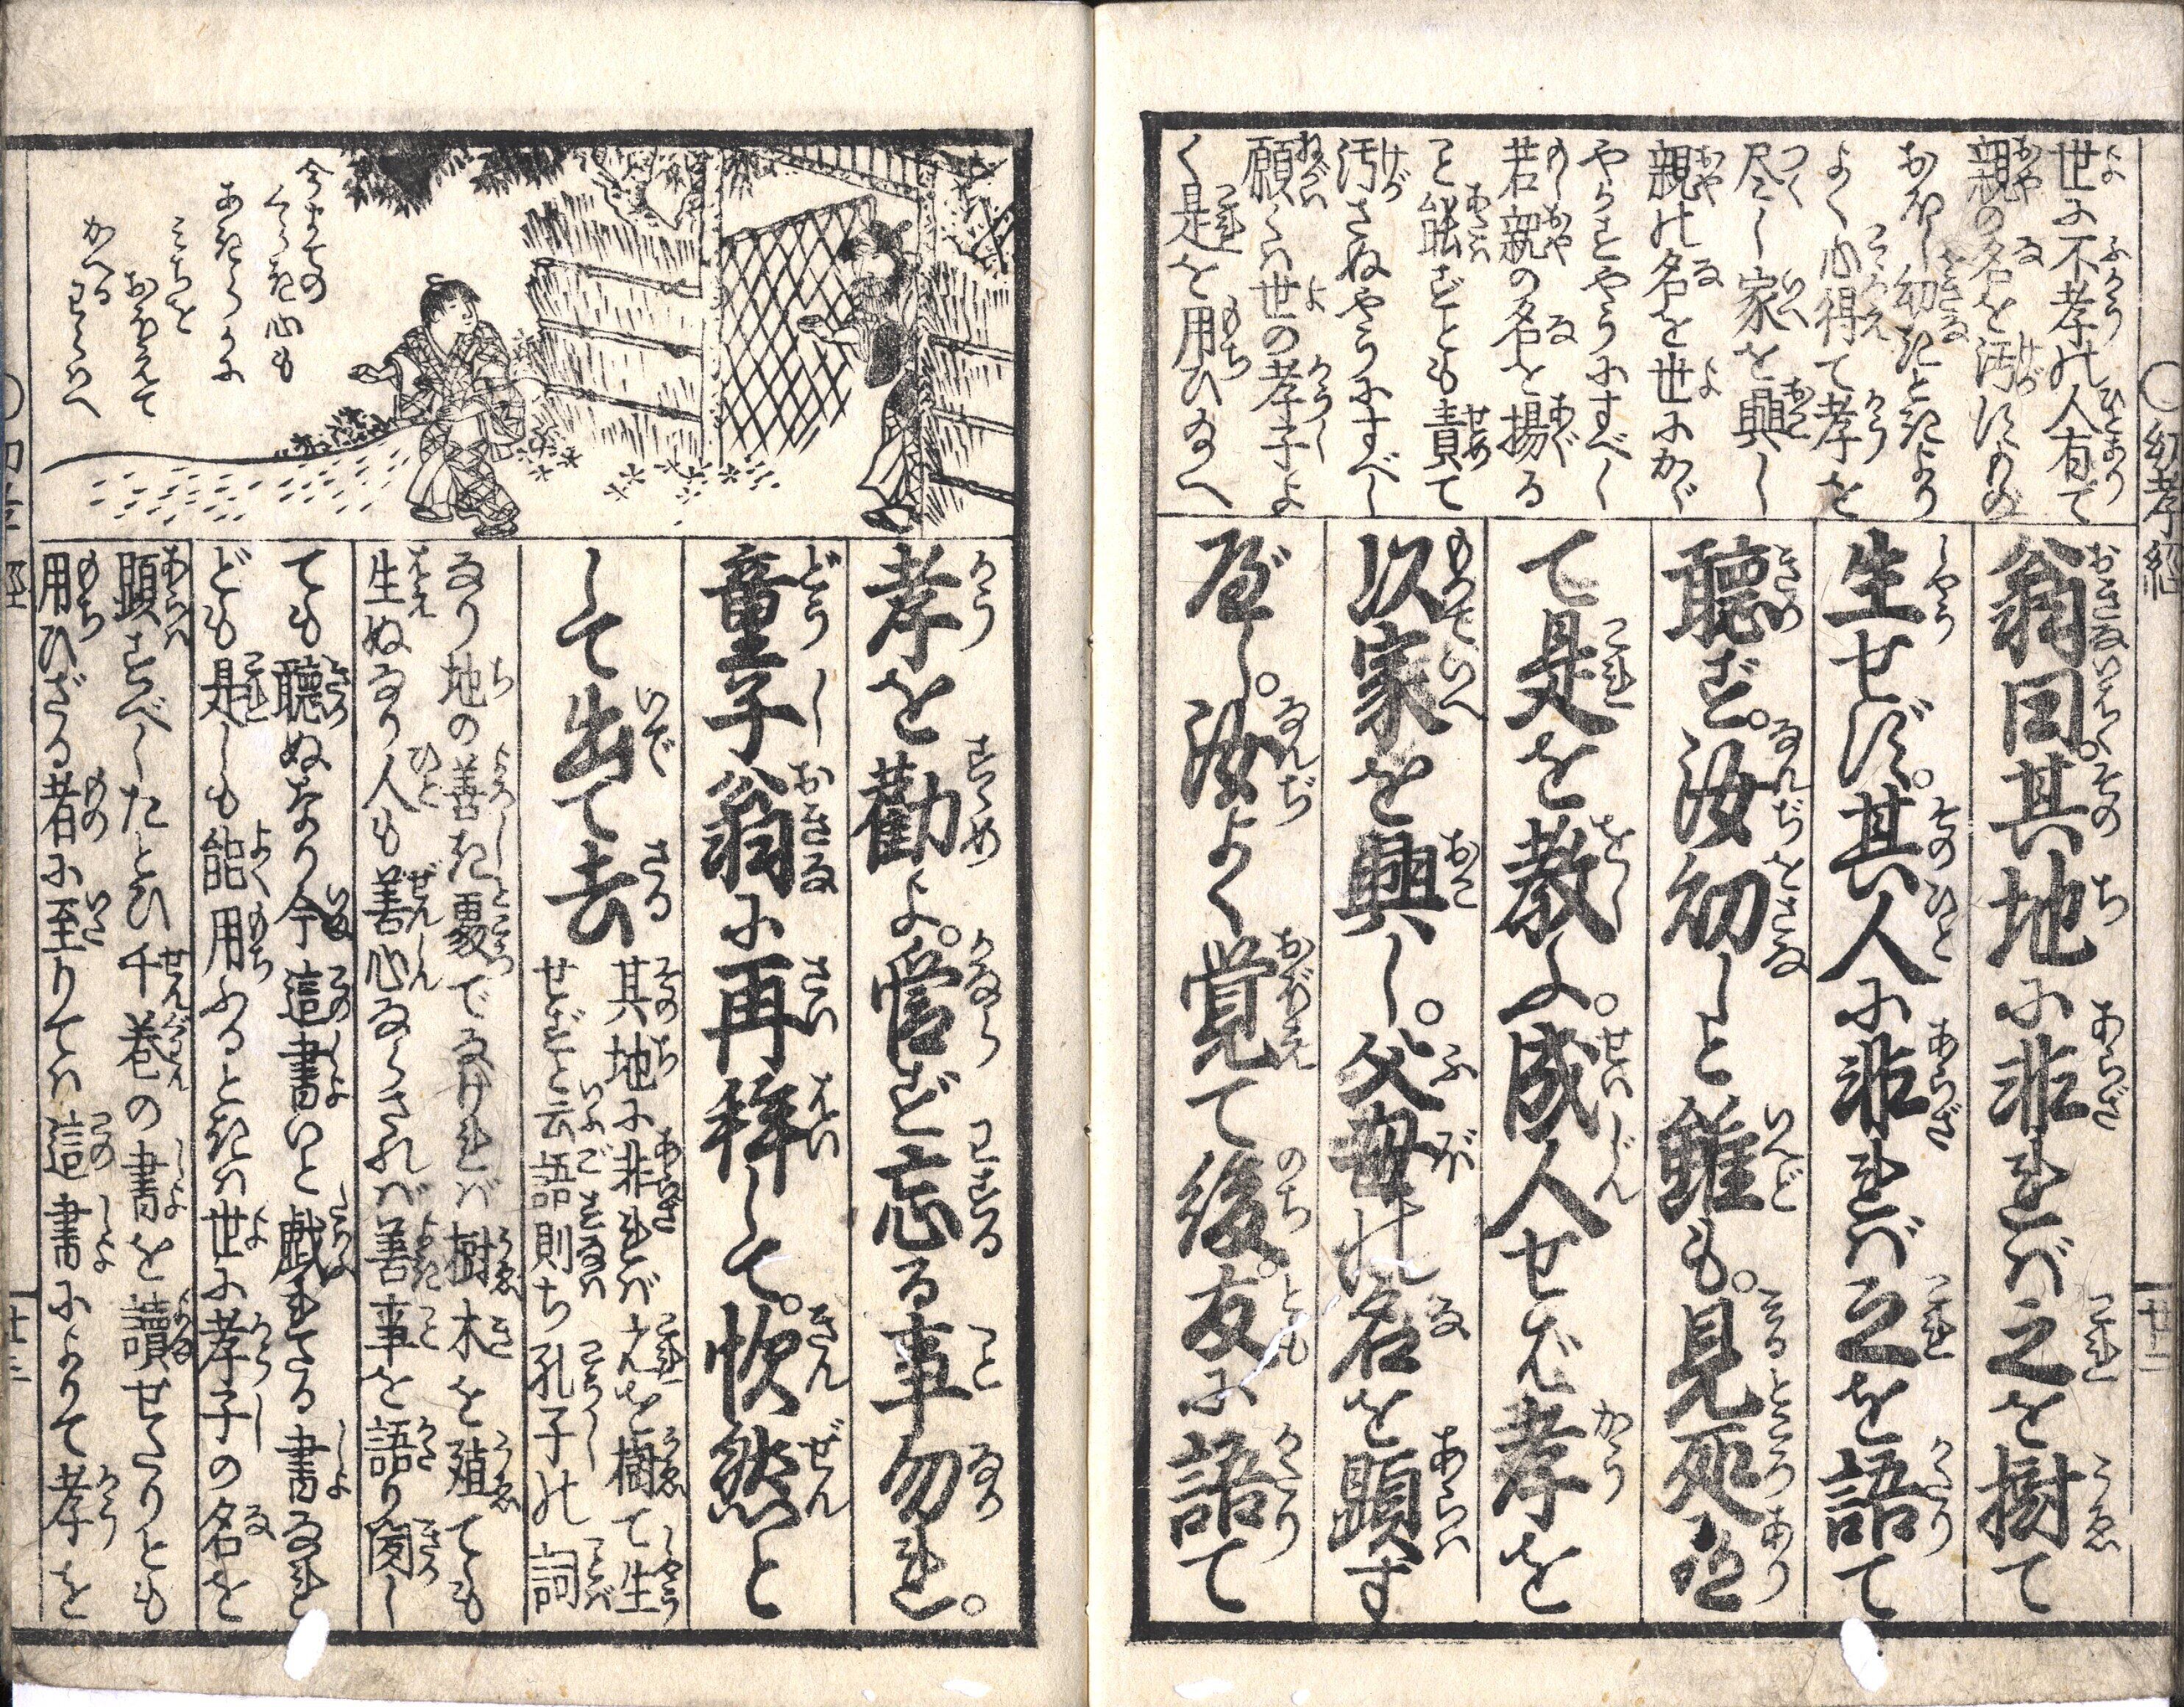 世に不孝の人有て
親の名を汚すもの
おほし幼きときより
よく心得て孝を
尽し家を興し
親の名を世にかゞ
やかさんやうにすべし
若親の名を揚る
こと能ずとも責て
汚さぬやうにすべし
願くは世の孝子よ
く是を用ひ給へ
○幼孝経
廿二
翁曰。其地に非ればこれを樹て
生せず。其人に非れば之を語て
聴ず。汝幼しと雖も。見処有
て是を教しよ。成人せば孝を
以家を興し。父母の名を顕す
べし。汝よく覚て後。友に語て
今までの
くらき心も
あきらかに
みちを
おぼえて
かへる
わらへ
孝を勧よ。
忘る事勿れ。
童子翁に再拝して。忻然と
して出て去
其地に非ればこれを樹て生
せずと云語則ち孔子の詞
なり地の善き処でなければ樹木を殖ても
生ぬなり人も善心ならざれば善事を語り聞し
ても聴ぬなり今這書いと戯れたる書なれ
ども是しも能用ふるときは世に孝子の名を
顕すべしたとひ千巻の書を読せたりとも
用ひざる者に至りては這書によりて孝を
廿三